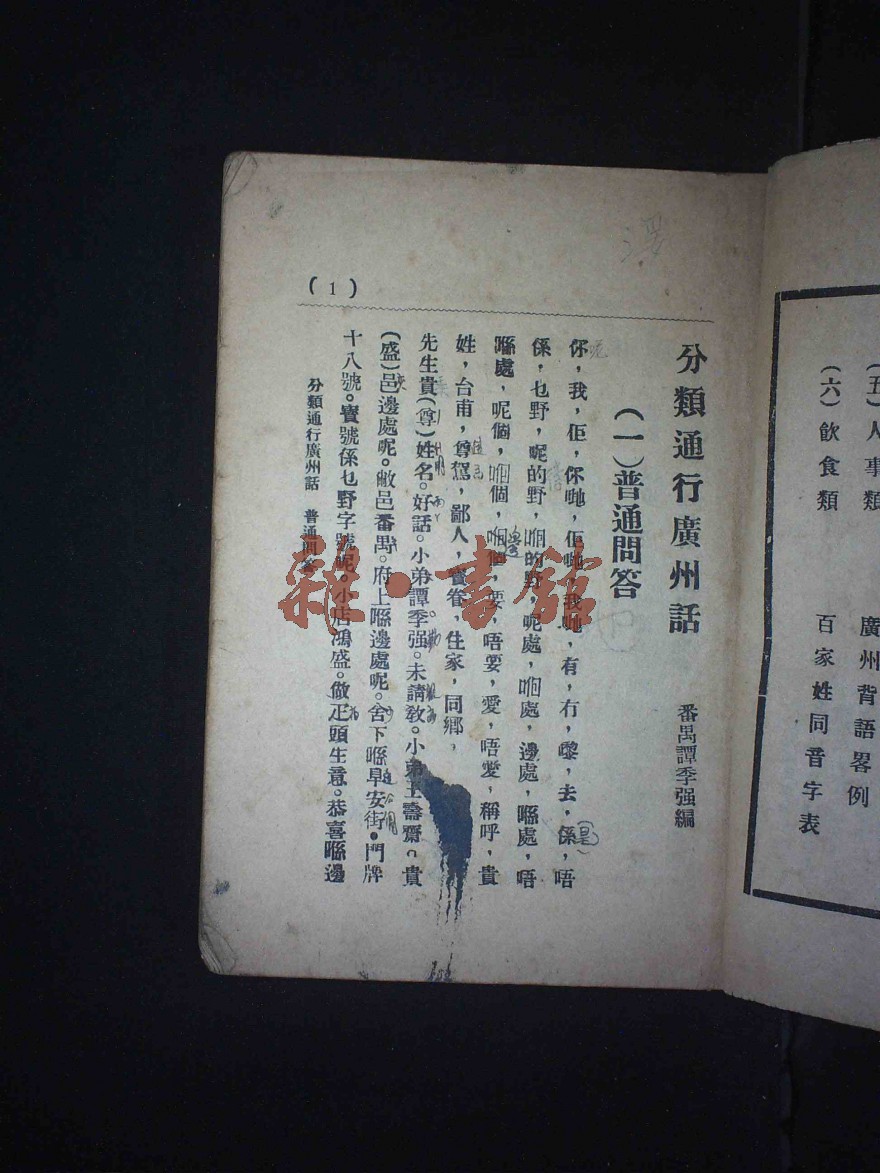 (五)人事類 廣州背語畧例
(六)飲食類 百家姓同音字表
分類通行廣州話
番禺譚季强編
(一)普通問答
你,我,佢,你哋,佢哋,我哋,有,冇,嚟,去,係,唔
係,乜野,呢的野,嗰的野,呢處,嗰處,邊處,喺處,唔
喺處,呢個,嗰個,嗰個,要,唔要,愛,唔愛,稱呼,貴
姓,台甫,尊駕,鄙人,寶眷,住家,同鄉,
先生貴(尊)姓名。好話。小弟譚季强。未請敎。小弟王壽齋。貴
(盛)邑邊處呢。敝邑番禺。府上喺邊處呢。舍下喺早安街。門牌
十八號。寶號係乜野字號呢。小店鴻盛。做疋頭生意。恭喜喺邊
分類通行廣州話 普通問答
(1)
雜·書館